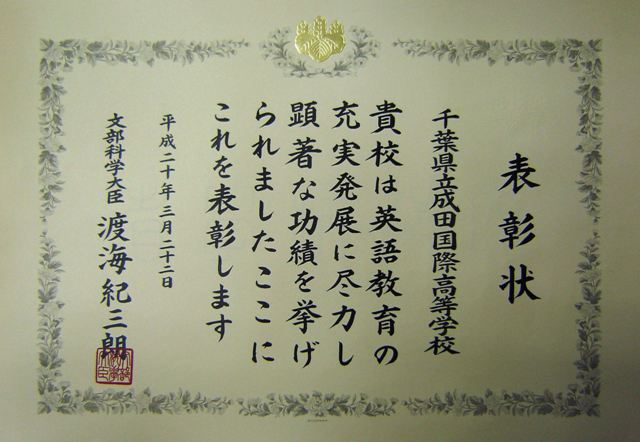 表彰状
千葉県立成田国際高等学校
貴校は英語教育の
充実発展に尽力し
顕著な功績を挙げ
られましたここに
これを表彰します
平成二十年三月二十二日
文部科学大臣 渡海紀三朗